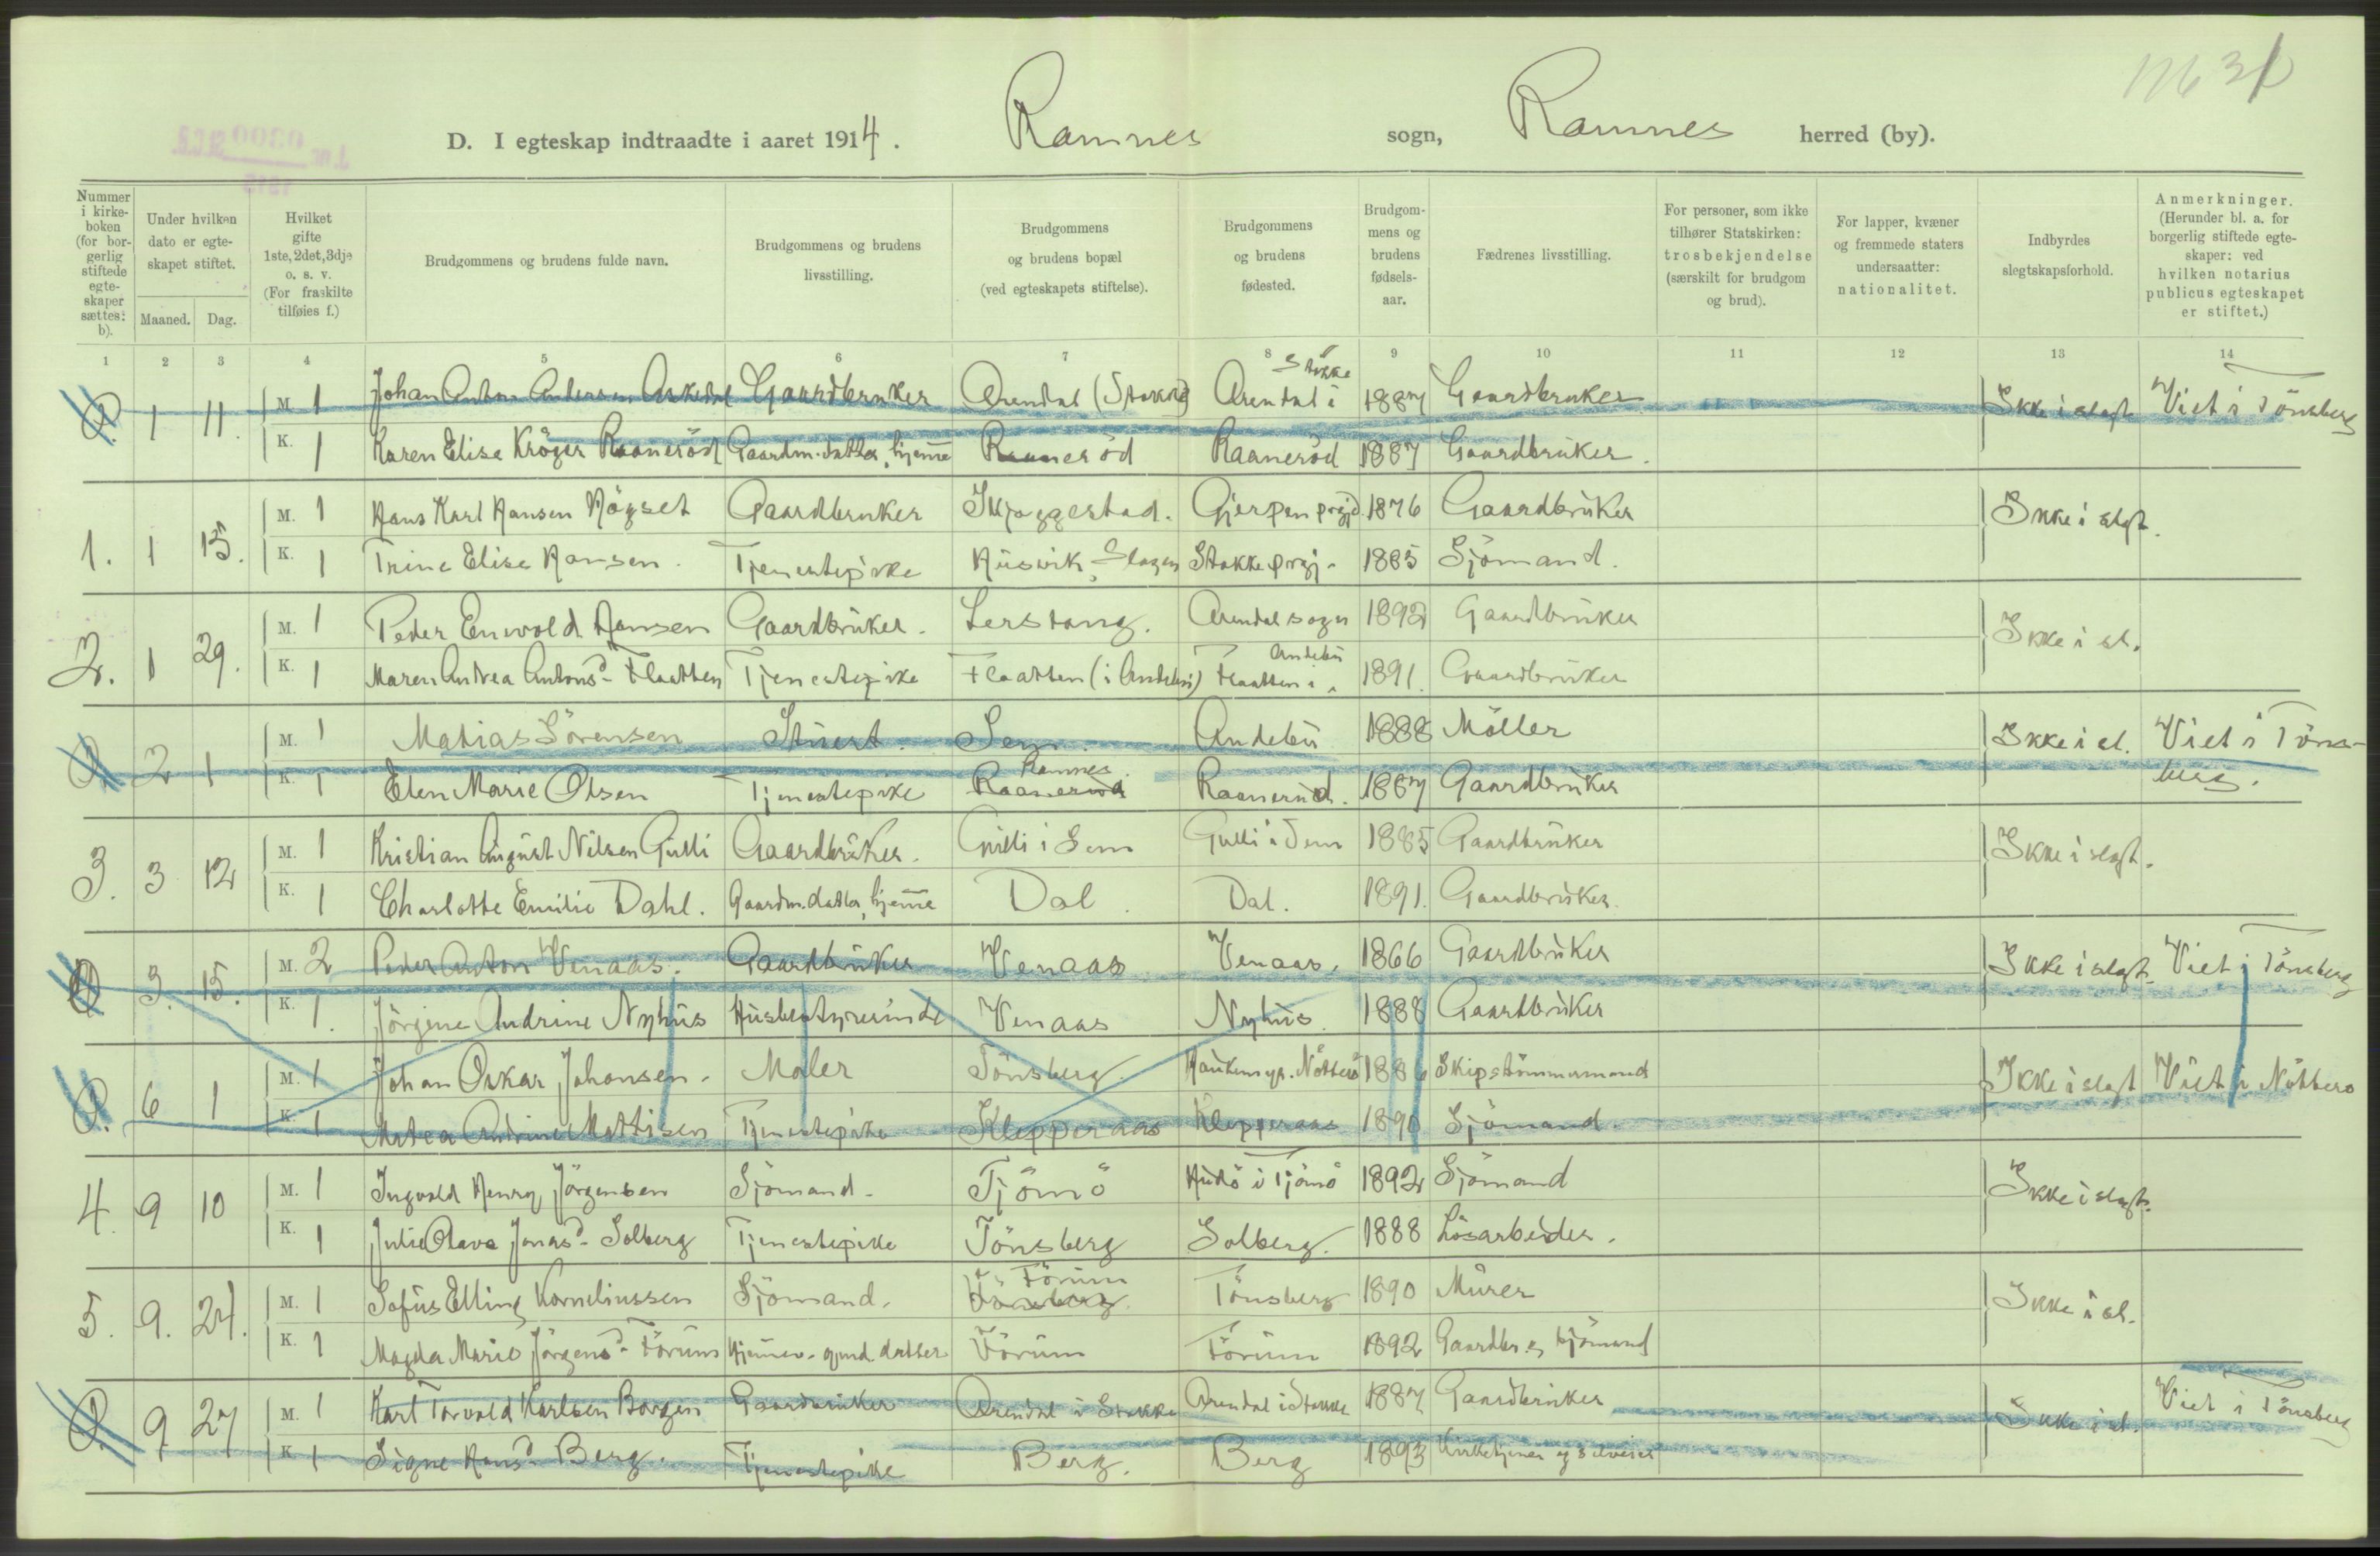 D. I egteskap indtraadte i aaret 1914. Ramnes sogn, Ramnes herred (by).
Nummer i kirke-boken (for bor-gerlig stiftede egte-skaper sættes: b).
Under hvilken dato er egte-skapet stiftet.
Maaned. Dag.
Hvilket gifte 1ste, 2det, 3dje o. s. v. (For fraskilte tilføies f.)
Brudgommens og brudens fulde navn.
Brudgommens og brudens livsstilling.
Brudgommens og brudens bopæl (ved egteskapets stiftelse).
Brudgommens og brudens fødested.
Brudgom-mens og brudens fødsels-aar.
Fædrenes livsstilling.
For personer, som ikke tilhører Statskirken: trosbekjendelse (særskilt for brudgom og brud).
For lapper, kvæner og fremmede staters undersaatter: nationalitet.
Indbyrdes slegtskapsforhold.
Anmerkninger. (Herunder bl. a. for borgerlig stiftede egte-skaper: ved hvilken notarius publicus egteskapet er stiftet.)
1 2 3 4 5 6 7 8 9 10 11 12 13 14
1 11. M. 1 Johan Anton Andersen Askedal Gaardbruker Arendal (Stokke) Arendal i Stokke 1887 Gaardbruker Ikke i slegt Viet i Tönsberg
K. 1 Karen Elise Kröger Raaneröd Gaardm. datter, hjemme Raaneröd Raaneröd 1887 Gaardbruker.
1. 1 15. M. 1 Hans Karl Hansen Högset Gaardbruker Skjeggestad. Gjerpen prgjd. 1876 Gaardbruker Ikke i slegt.
K. 1 Trine Elise Hansen. Tjenestepike Husvik, Slagen Stokke prgj. 1885 Sjömand.
2. 1 29. M. 1 Peder Enevold Hansen Gaardbruker. Lerstang. Arendal sogn 1892 Gaardbruker Ikke i sl.
K. 1 Maren Andrea Antonsd. Flaatten Tjenestepike Flaatten (i Andebu) Flaatten i Andebu 1891. Gaardbruker
2 1 M. 1 Matias Sörensen Stuert. Sem. Andebu 1888 Möller Ikke i sl. Viet i Töns-
berg.
K. 1 Elen Marie Olsen Tjenestepike Raaneröd Ramnes Raaneröd. 1887 Gaardbruker
3. 3 12 M. 1 Kristian August Nilsen Gulli Gaardbruker. Gulli i Sem Gulli i Sem 1885 Gaardbruker Ikke i slegt.
K. 1 Charlotte Emilie Dahl. Gaardm. datter, hjemme Dal. Dal. 1891. Gaardbruker.
3. 15. M. 2 Peder Anton Venaas. Gaardbruker Venaas Venaas. 1866 Gaardbruker Ikke i slegt. Viet i Tönsberg
K. 1. Jörgine Andrine Nyhus Husbestyrerinde Venaas Nyhus. 1888 Gaardbruker
6 1 M. 1 Johan Oskar Johansen. Maler Tönsberg. Nötterö 1886 Skipstömmermand Ikke i slegt Viet i Nötterö
K. 1 Matea Andrine Mattisen Tjenestepike Klepperaas Klepperaas 1890 Sjömand.
4. 9 10 M. 1 Ingvald Henry Jörgensen Sjömand. Tjömö Hudö i Tjömö 1892 Sjömand Ikke i slegt.
K. 1 Julie Olava Jonasd. Solberg Tjenestepike Tönsberg Solberg. 1888 Lösarbeider.
5. 9. 24. M. 1 Sofus Elling Korneliussen Sjömand. Tönsberg Förum Tönsberg 1890 Murer Ikke i sl.
K. 1 Magda Marie Jörgensd. Förum Hjemmev. gmd. datter Förum Förum 1892 Gaardbr. og sjömand
9 27 M. 1 Karl Torvald Karlsen Borgen Gaardbruker Arendal i Stokke Arendal i Stokke 1887 Gaardbruker Ikke i sl. Viet i Tönsberg
K. 1 Signe Hansd. Berg. Tjenestepike Berg. Berg 1893 Kirketjener og selveier